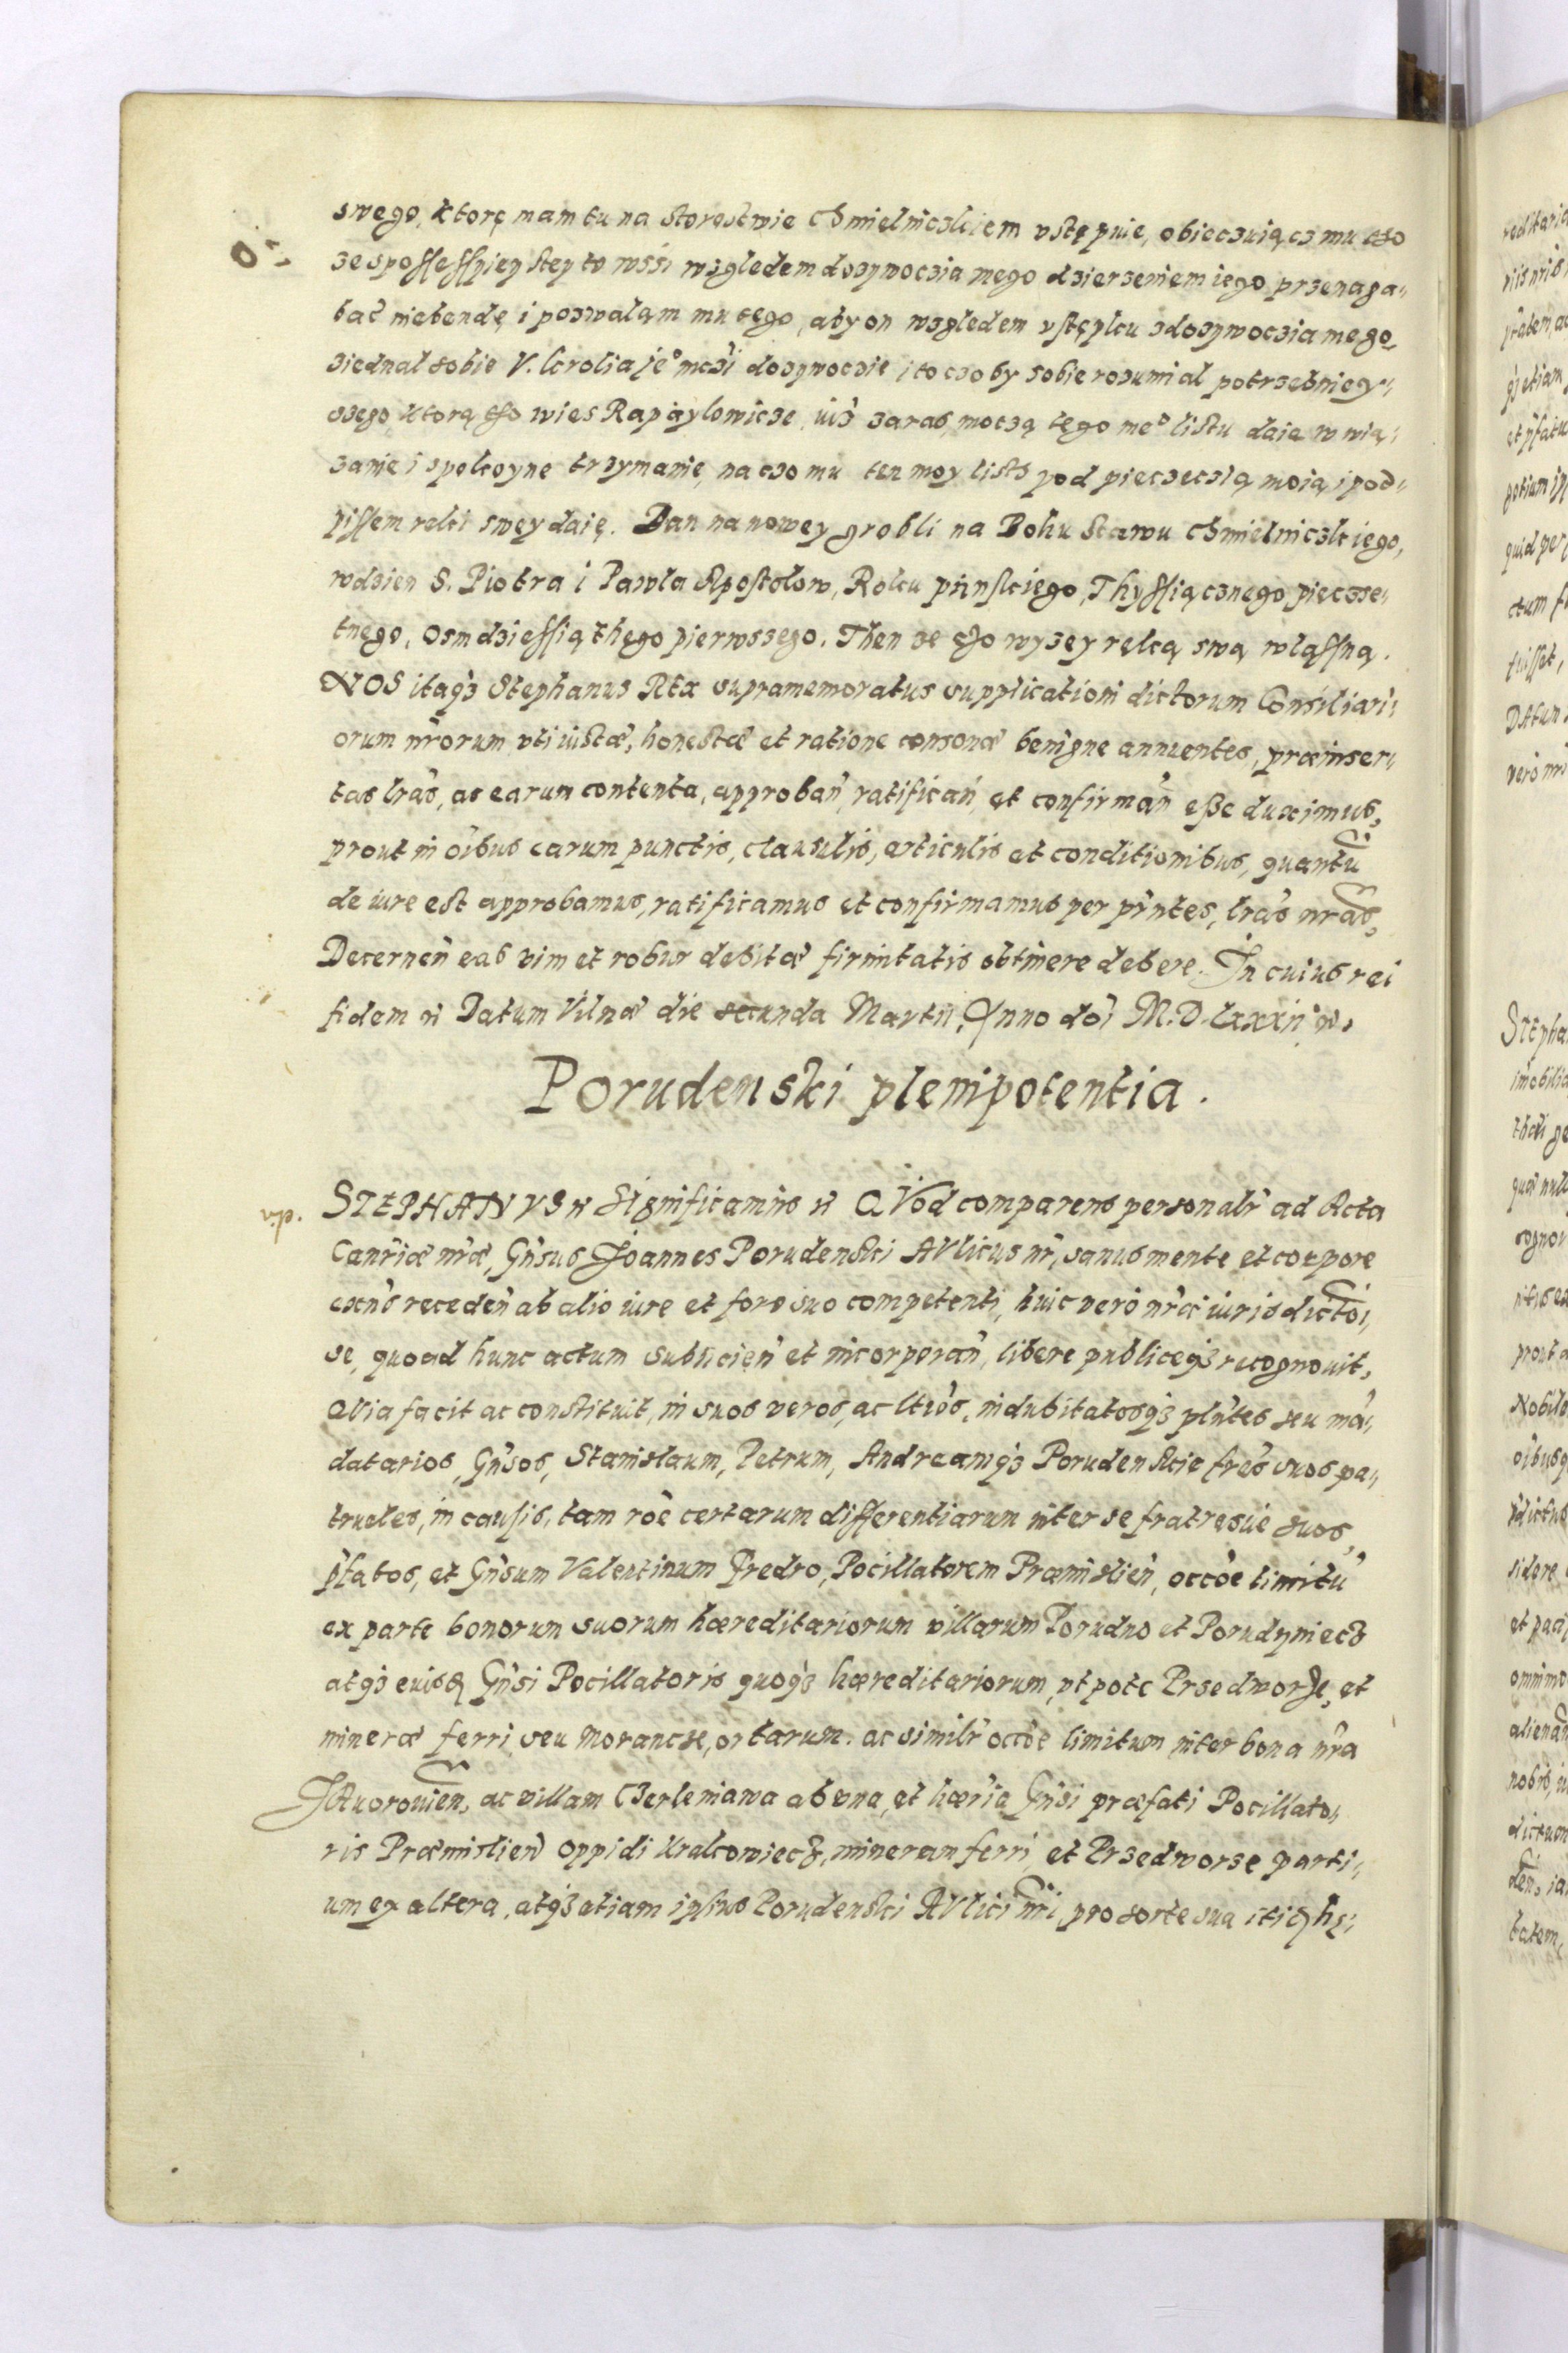 swego, ktorę mam tu na Storostwie Chmielniczkiem vstępuie, obieczuiącz mu tho
ze spossessyiey Stey to wssi wzgledem dozywoczia mego dzierzeniem iego przenaga„
bać niebendę i pozwalam mu tego, aby on wzgledem vstępku zdozywoczia mego
ziednal sobie V. krolia je° mczi dozywoczie i to czo by sobie rozumial potrzebniey„
szego, ktorą tho wies Rapaylowicze, iuż zaras, moczą tego me° listu daie w wią„
zanie i spokoyne trzymanie, na czo mu ten moy lists pod pieczeczią moią, i pod„
pissem relki swey daię. Dan na nowey grobli na Bohu Stawu Chmielniczkiego,
wdzien S. Piotra i Pawla Apostolow, Roku pańskiego, Thyssiącznego pięczse„
tnego, osmdziessiąthego pierwszego. Then ze tho wyzey ręlką swą wlassną.
NOS itaq3 Stephanus Rex supramemoratus supplicationi dictorum Consiliari„
orum nr̃orum vti iustæ, honestæ et ratione consonæ benigne annuentes, præinser„
tas lrãs, ac earum contenta, approbañ, ratificañ, et confirmañ eße duximus,
prout in oĩbus earum punctis, clausulis, articulis et conditionibus, quantũ
de iure est approbamus, ratificamus et confirmamus per pr̃ntes, lrãs nrãs,
Decerneñ eas vim et robur debitæ firmitatis obtinere debere. In cuius rei
fidem etc Datum Vilnæ die secunda Martii, Anno doĩ M.D.lxxxii etc.
Porudenski plenipotentia.
v.p. STEPHANVS etc Significamus etc QVod comparens personalr̃ ad Acta
Canr̃iæ nr̃æ, Gñsus Joannes Porudenski AVlicus nr̃, sanus mente et corpore
exñs recedeñ ab alio iure et foro suo competenti, huic vero nr̃æ iurisdictoĩ,
se, quoad hunc actum subiicieñ et incorporañ, libere publiceq3 recognouit,
QVia facit ac constituit, in suos veros, ac ltĩos, indubitatosq3 plñtes seu mã„
datarios, Gñsos, Stanislaum, Petrum, Andreamq3 Porudenskie frẽs suos pa„
trueles, in causis, tam roẽ certarum differentiarum inter se fratresue suos,
pfatos, et Gñsum Valentinum Fredro, Pocillatorem Præmislieñ, occoẽ limitũ
ex parte bonorum suorum hæreditariorum villarum Porudno et Porudyniecz
atq3 euisdę Gñsi Pocillatoris quoq3 hæreditariorum, vt pote Przedworze, et
mineræ ferri, seu Morancze, ortarum. ac similr̃ occoẽ limitum inter bona nr̃a
JAuorouieñ, ac villam Czerleniawa ab vna, et hær̃ia Gñsi præfati Pocillato„
ris Præmislieñ oppidi Krakowiecz, mineram ferri, et Przedworze, parti„
um ex altera, atq3 etiam ipsius Porudenski AVlici nr̃i, pro sorte sua